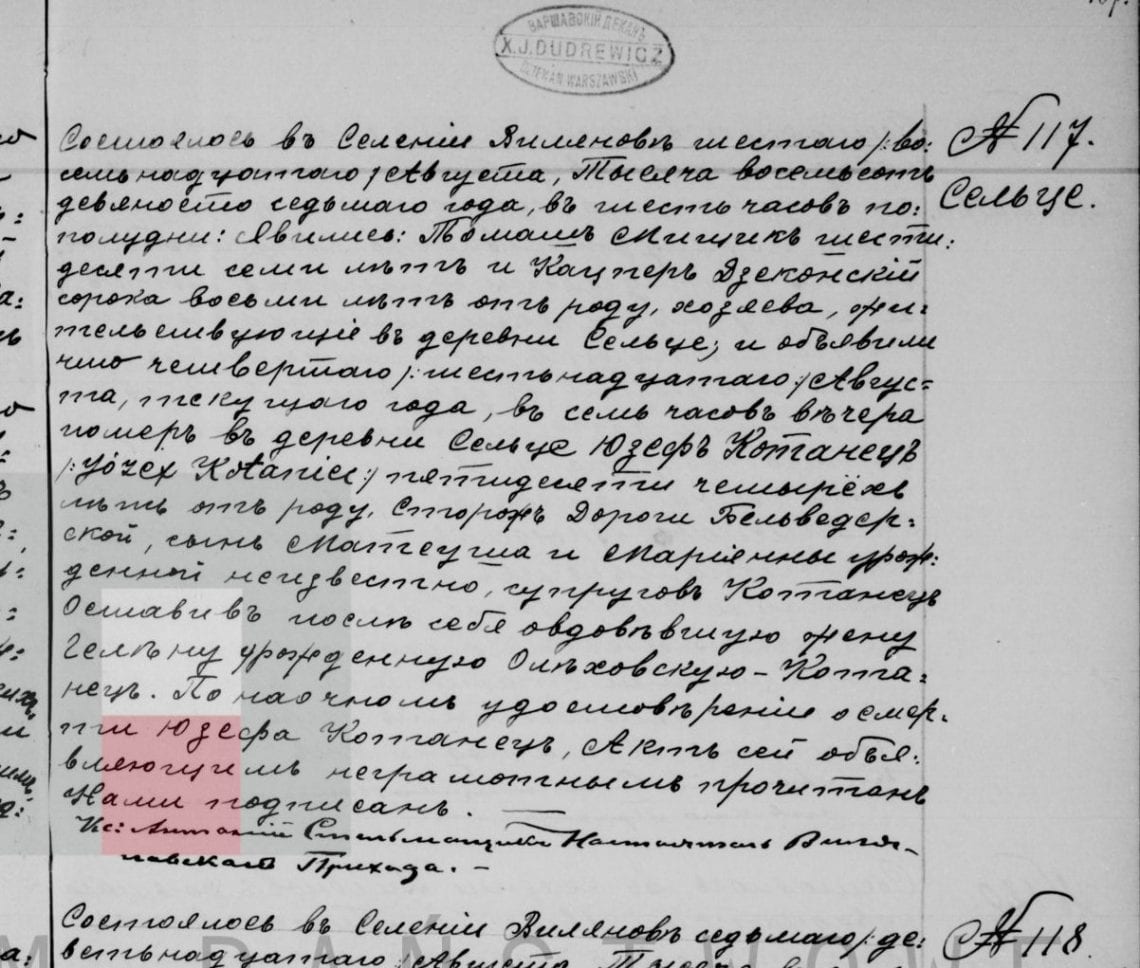 ВАРШАВСКІЙ ДЕКАНЪ
X.J.DUDREWICZ
DZIEKAN WARSZAWSKI
Состоялось въ Селеніи Виляновѣ шестаго /:во:
семьнадцатаго/ Августа, Тысяча восемьсотъ
девяносто седьмаго года, въ шесть часовъ по:
полудни: Явились: Томашъ Мищикъ шести:
десяти семи лѣтъ и Кацперъ Дзеконскій
сорока восьми лѣтъ отъ роду, хозяева, жи:
тельствующіе въ деревни Сельце; и объявили
что четвертаго /:шестьнадцатаго:/ Авгус=
та, текущаго года, въ семь часовъ вѣчера
померъ въ деревни Сельце Юзефъ Котанецъ
/:Józef Kotaniec:/ пятидесяти четырёхъ
лѣтъ отъ роду, Сторожъ Дороги Бельведер:
ской, сынъ Матеуша и Маріянны урож:
денной неизвестно, супруговъ Котанецъ
Оставивъ послѣ себя овдовѣвшую жену
Гелѣну урожденную Олѣховскую - Кота:
нецъ. По наочномъ удостовѣреніи о смер:
ти Юзефа Котанецъ, Актъ сей объя:
вляющимъ неграмотнымъ прочитанъ
Нами подписанъ.
Кс: Антоній Настоятель Виля-
новскаго Прихода. -
№ 117.
Сельце.
Состоялось въ Селеніи Виляновѣ седьмаго /:де:
вятьнадцатаго/ Августа
№ 118